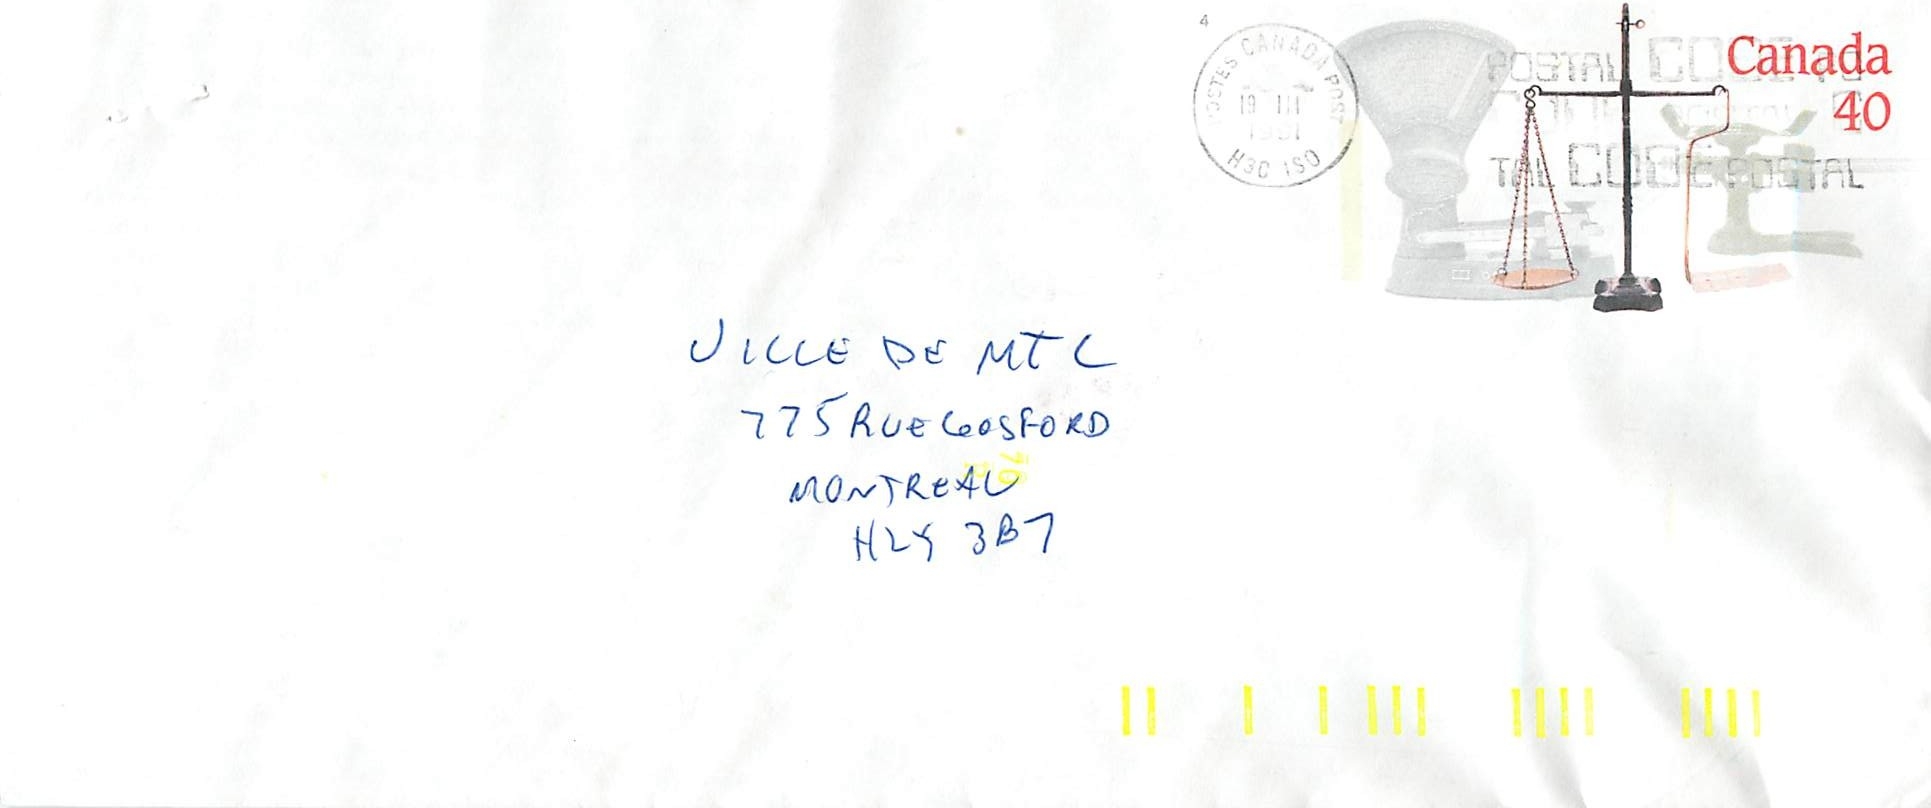 4
POSTES CANADA POST
19 III
1991
H3C 1S0
POSTAL CODE
TAL CODE POSTAL
Canada
40
VILLE DE MTL
775 RUE GOSFORD
MONTREAL
H2Y 3B7